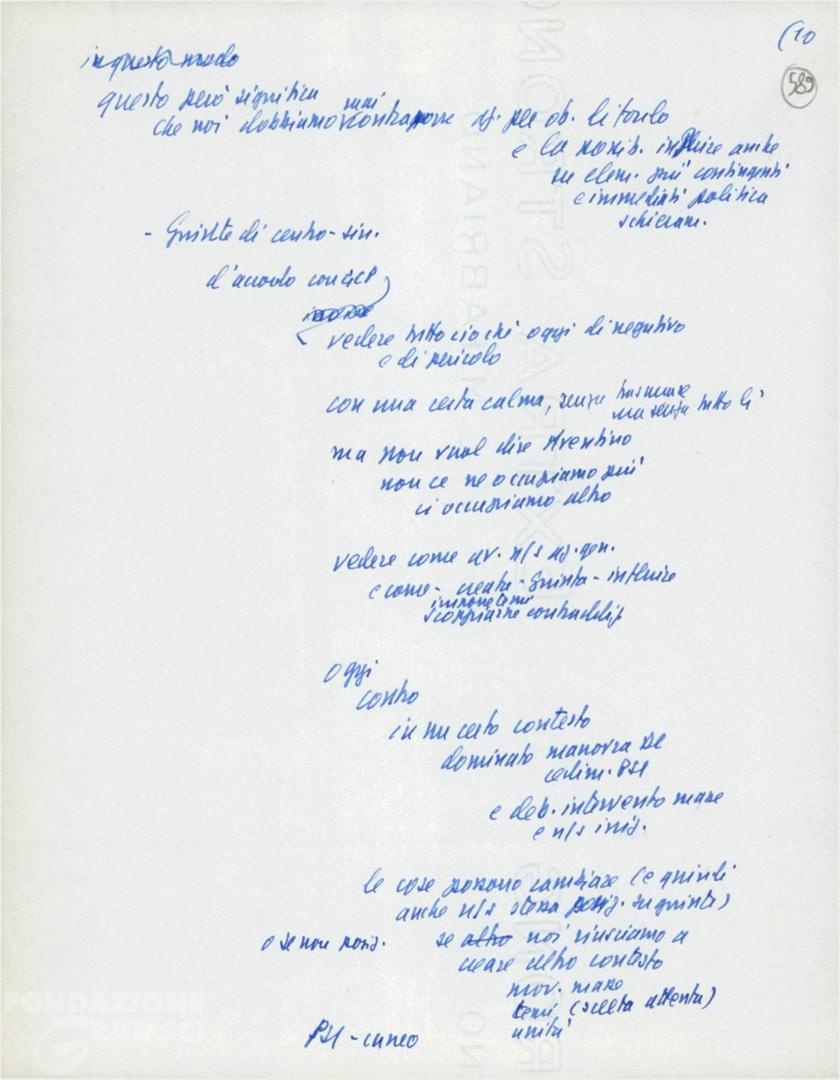 (10
589
in questo modo
questo però significa mai
che noi dobbiamo contrapporre per ob. di fondo
e la possib. influire anche
su elem. più contingenti
e immediati politica
schieram.
- Giunte di centro-sin.
d'accordo con GCP
vedere tutto ciò chè oggi di negativo
e di pericolo
con una certa calma, senza
ma senza tutto lì
ma non vuol dire Aventino
non ce ne occupiamo più
ci occupiamo altro
vedere come av. n/s az. gen.
e come - creata - Giunta - influire
imporre temi
scoppiarne contraddiz.
oggi
contro
in un certo contesto
dominato manovra DC
cedim. PSI
e deb. intervento masse
e n/s iniz.
le cose possono cambiare (e quindi
anche n/s stessa posiz. su giunte)
o se non posiz. se altro noi riusciamo a
creare altro contesto
mov. masse
temi (scelta attenta)
unità
PSI - cuneo
FONDAZIONE
GRAMSCI